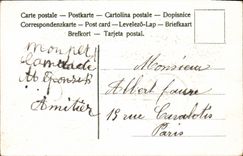 Carte postale – Postkarte – Cartolina postale – Dopisnice
Correspondenzkarte – Post card – Levelező-Lap – Briefkaart
Brefkort – Tarjeta postal.
mon
Amitier
Monsieur
Albert faure
15 rue
Paris